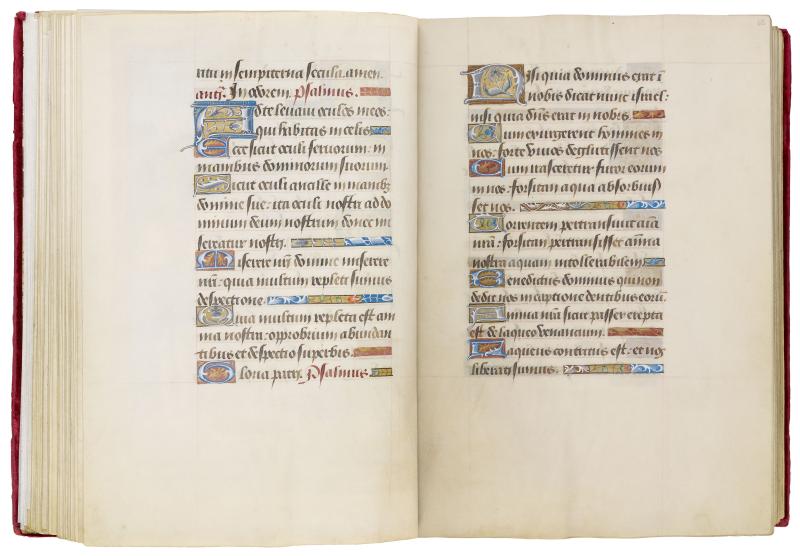 vita in sempiterna secula. amen.
ant̃. In odorem. Psalmus.
Ad te levavi oculos meos:
qui habitas in celis
Ecce sicut oculi servorum: in
manibus dominorum suorum.
Sicut oculi ancille in manib3
domine sue: ita oculi nostri ad do
minum deum nostrum donec mi
sereatur nostri.
Miserere nr̃i domine miserere
nr̃i: quia multum repleti sumus
despectione.
Quia multum repleta est ani
ma nostra: opprobrium abundan
tibus et despectio superbis.
Gloria patri. Psalmus.
Nisi quia dominus erat ĩ
nobis dicat nunc israel:
nisi quia dñs erat in nobis.
Cum exurgerent homines in
nos: forte vivos deglutissent nos
Cum irasceretur furor eorum
in nos: forsitan aqua absorbuis
set nos.
Torrentem pertransivit aĩa
nr̃a: forsitan pertransisset anima
nostra aquam intollerabilem.
Benedictus dominus qui non
dedit nos in captione dentibus eorũ.
Anima nr̃a sicut passer erepta
est de laqueo venantium.
Laqueus contritus est: et nos
liberati sumus.